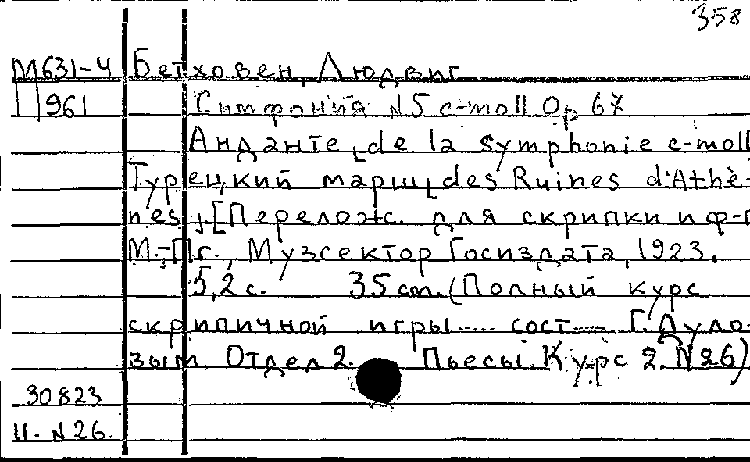 358
М631-4 Бетховен, Людвиг
П 961 Симфония №5 c-moll Op 67
Анданте [de la symphonie c-moll
Турецкий марш [des Ruines d'Athè-
nes]. [Перелож. для скрипки и ф-п
М.-Пг., Музсектор Госиздата, 1923.
5,2 с. 35 cm. (Полный курс
скрипичной игры .... сост.... Г. Дуло-
вым. Отдел 2. Пьесы. Курс 2. №26)
30823
II. №26.